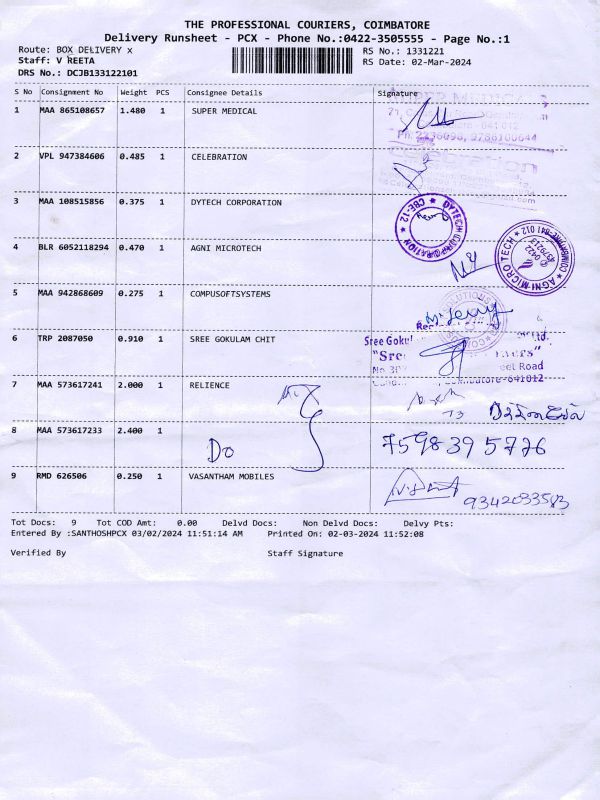 THE PROFESSIONAL COURIERS, COIMBATORE
Delivery Runsheet - PCX - Phone No.:0422-3505555 - Page No.:1
Route: BOX DELIVERY x RS No.: 1331221
Staff: V REETA RS Date: 02-Mar-2024
DRS No.: DCJB133122101
S No Consignment No Weight PCS Consignee Details Signature
1 MAA 865108657 1.480 1 SUPER MEDICAL
2 VPL 947384606 0.485 1 CELEBRATION
3 MAA 108515856 0.375 1 DYTECH CORPORATION
DYTECH CORPORATION ★ CBE-12 ★
4 BLR 6052118294 0.470 1 AGNI MICROTECH
★ AGNI MICRO TECH ★ COIMBATORE-641 012
5 MAA 942868609 0.275 1 COMPUSOFTSYSTEMS
6 TRP 2087050 0.910 1 SREE GOKULAM CHIT
7 MAA 573617241 2.000 1 RELIENCE
8 MAA 573617233 2.400 1 Do 7598395726
9 RMD 626506 0.250 1 VASANTHAM MOBILES 9342033583
Tot Docs: 9 Tot COD Amt: 0.00 Delvd Docs: Non Delvd Docs: Delvy Pts:
Entered By :SANTHOSHPCX 03/02/2024 11:51:14 AM Printed On: 02-03-2024 11:52:08
Verified By Staff Signature